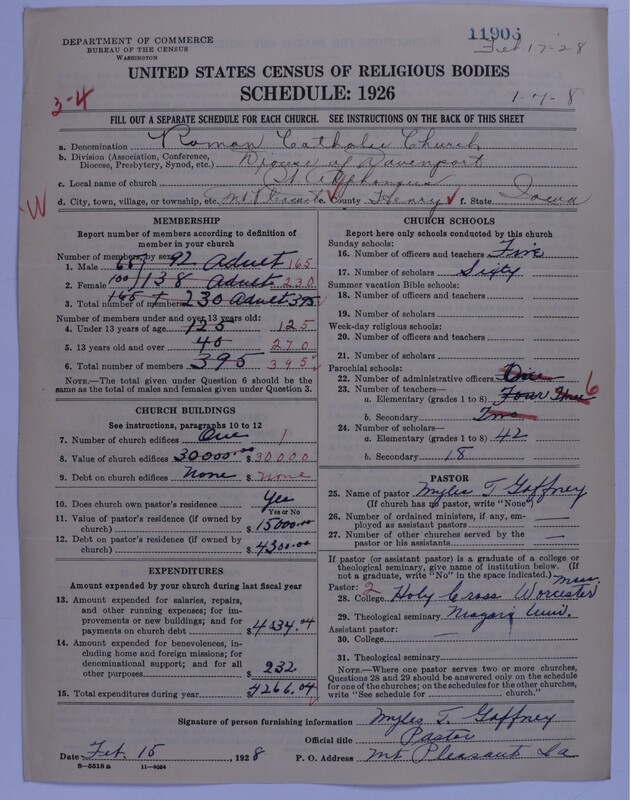 11906
DEPARTMENT OF COMMERCE
BUREAU OF THE CENSUS
WASHINGTON
Feb 17-28
UNITED STATES CENSUS OF RELIGIOUS BODIES
SCHEDULE: 1926
3-4
1-7-8
FILL OUT A SEPARATE SCHEDULE FOR EACH CHURCH. SEE INSTRUCTIONS ON THE BACK OF THIS SHEET
a. Denomination Roman Catholic Church
b. Division (Association, Conference, Diocese, Presbytery, Synod, etc.) Diocese of Davenport
c. Local name of church St. Alphonsus
W
d. City, town, village, or township, etc. Mt Pleasant e. County Henry f. State Iowa
MEMBERSHIP
Report number of members according to definition of
member in your church
Number of members by sex:
1. Male 92 Adult 165
2. Female 100 138 Adults 230
3. Total number of members 165 + 230 Adult 395
Number of members under and over 13 years old:
4. Under 13 years of age 125 125
5. 13 years old and over 40 270
6. Total number of members 395 395
NOTE.—The total given under Question 6 should be
same as the total of males and females given under Question 3.
CHURCH BUILDINGS
See instructions, paragraphs 10 to 12
7. Number of church edifices One 1
8. Value of church edifices 30000.00 $ 30000
9. Debt on church edifices None $ None
10. Does church own pastor's residence? Yes
Yes or No
11. Value of pastor's residence (if owned by
church) $ 15000.00
12. Debt on pastor's residence (if owned by
church) $ 4300.00
EXPENDITURES
Amount expended by your church during last fiscal year
13. Amount expended for salaries, repairs,
and other running expenses; for im-
provements or new buildings; and for
payments on church debt $ 4034.04
14. Amount expended for benevolences, in-
cluding home and foreign missions; for
denominational support; and for all
other purposes $ 232
15. Total expenditures during year $ 4266.04
CHURCH SCHOOLS
Report here only schools conducted by this church
Sunday schools:
16. Number of officers and teachers Five
17. Number of scholars Sixty
Summer vacation Bible schools:
18. Number of officers and teachers
19. Number of scholars
Week-day religious schools:
20. Number of officers and teachers
21. Number of scholars
Parochial schools:
22. Number of administrative officers One
23. Number of teachers—
a. Elementary (grades 1 to 8) Four Three 6
b. Secondary Two
24. Number of scholars—
a. Elementary (grades 1 to 8) 42
b. Secondary 18
PASTOR
25. Name of pastor Myles T. Gaffney
(If church has no pastor, write "None")
26. Number of ordained ministers, if any, em-
ployed as assistant pastors —
27. Number of other churches served by the
pastor or his assistants —
If pastor (or assistant pastor) is a graduate of a college or
theological seminary, give name of institution below. (If
not a graduate, write "No" in the space indicated.)
Pastor: 2
28. College Holy Cross Worcester Mass.
29. Theological seminary Niagara Univ.
Assistant pastor:
30. College —
31. Theological seminary
NOTE.—Where one pastor serves two or more churches,
Questions 28 and 29 should be answered only on the schedule
for one of the churches; on the schedules for the other churches,
write "See schedule for church."
Signature of person furnishing information Myles T. Gaffney
Official title Pastor
Date Feb. 15, 1928 P. O. Address Mt Pleasant Ia
8-5518 a 11-9034